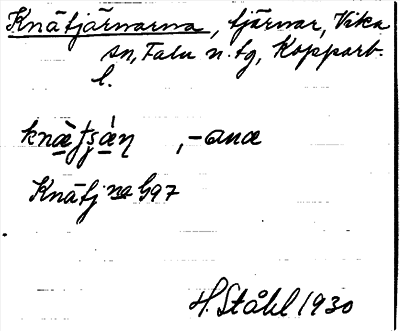 Knätjärnarna, tjärnar, Vika
sn, Falu n. tg, Kopparb.
l.
, -anæ
Knätj
H. Ståhl 1930